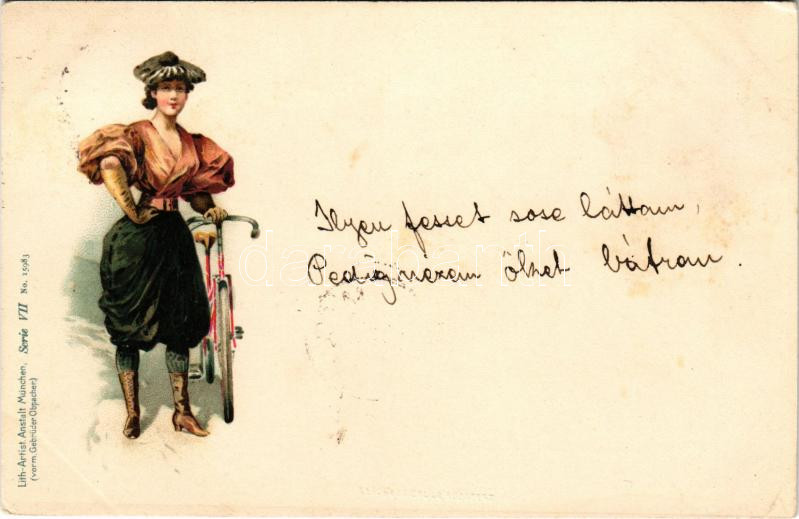 Ilyen fesset sose láttam,
Pedig nézem őket bátran.
Lith.-Artist. Anstalt München,
(vorm. Gebrüder Obpacher)
Serie VII No. 15983